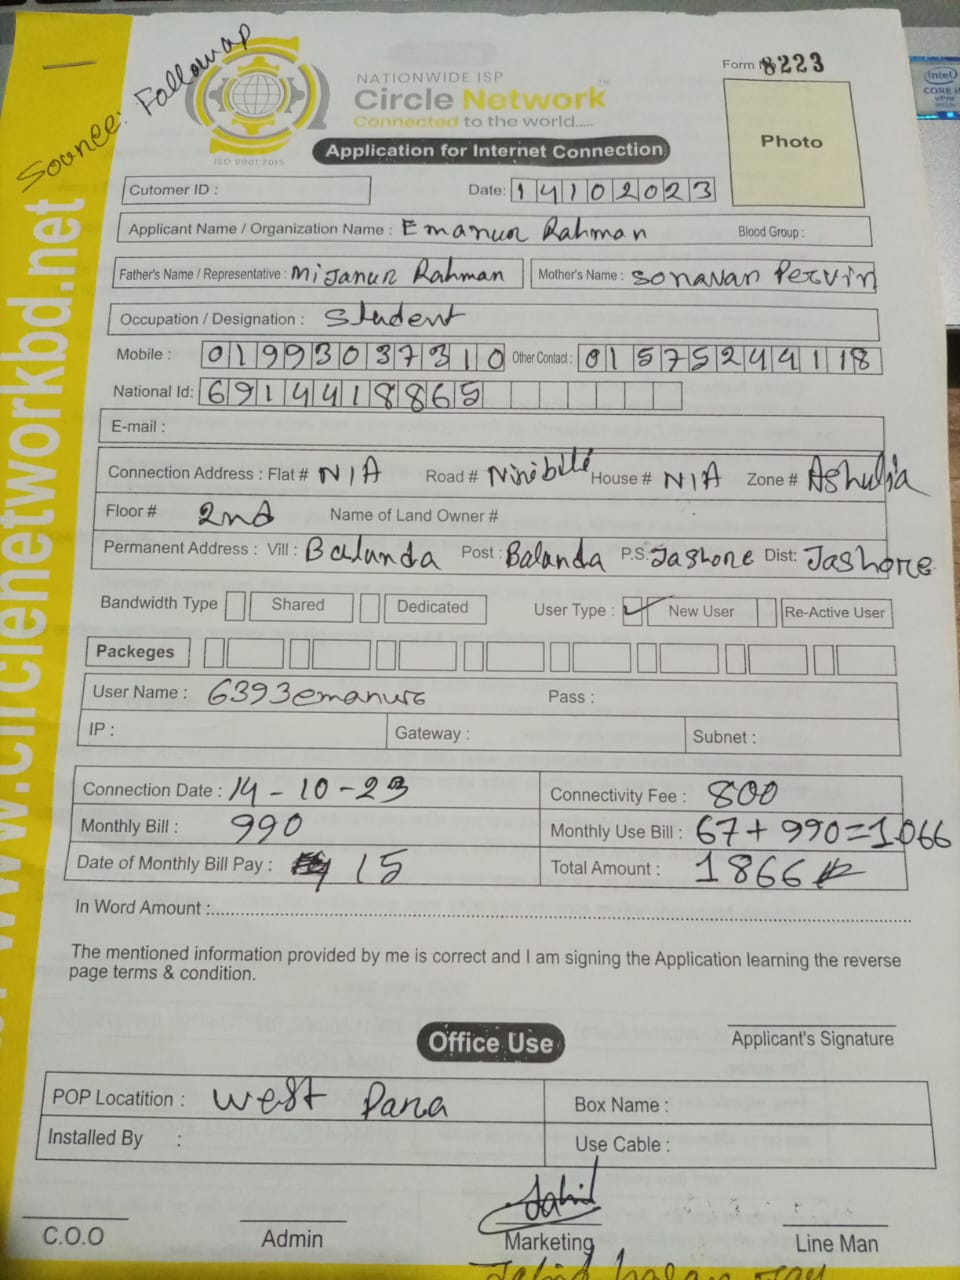 Sounce: Followap
www.circlenetworkbd.net
NATIONWIDE ISP
Circle Network
Connected to the world.....
ISO 9001:2015
Form 8223
Photo
intel
CORE i
vPro
Application for Internet Connection
Cutomer ID :
Date: 14102023
Applicant Name / Organization Name : Emanur Rahman Blood Group :
Father's Name / Representative : Mijanur Rahman Mother's Name : Sonavan Pervin
Occupation / Designation : Student
Mobile : 01993037310 Other Contact : 01575244118
National Id: 6914418865
E-mail :
Connection Address : Flat # N/A Road # House # N/A Zone # Ashulia
Floor # 2nd Name of Land Owner #
Permanent Address : Vill : Balunda Post : Balanda P.S. Jashore Dist: Jashore
Bandwidth Type Shared Dedicated User Type : ✓ New User Re-Active User
Packeges
User Name : 6393emanur Pass :
IP : Gateway : Subnet :
Connection Date : 14-10-23 Connectivity Fee : 800
Monthly Bill : 990 Monthly Use Bill : 67+990=1066
Date of Monthly Bill Pay : 15 Total Amount : 1866
In Word Amount :
The mentioned information provided by me is correct and I am signing the Application learning the reverse
page terms & condition.
Applicant's Signature
Office Use
POP Locatition : West Para Box Name :
Installed By : Use Cable :
Jahid
C.O.O Admin Marketing Line Man
Jahid